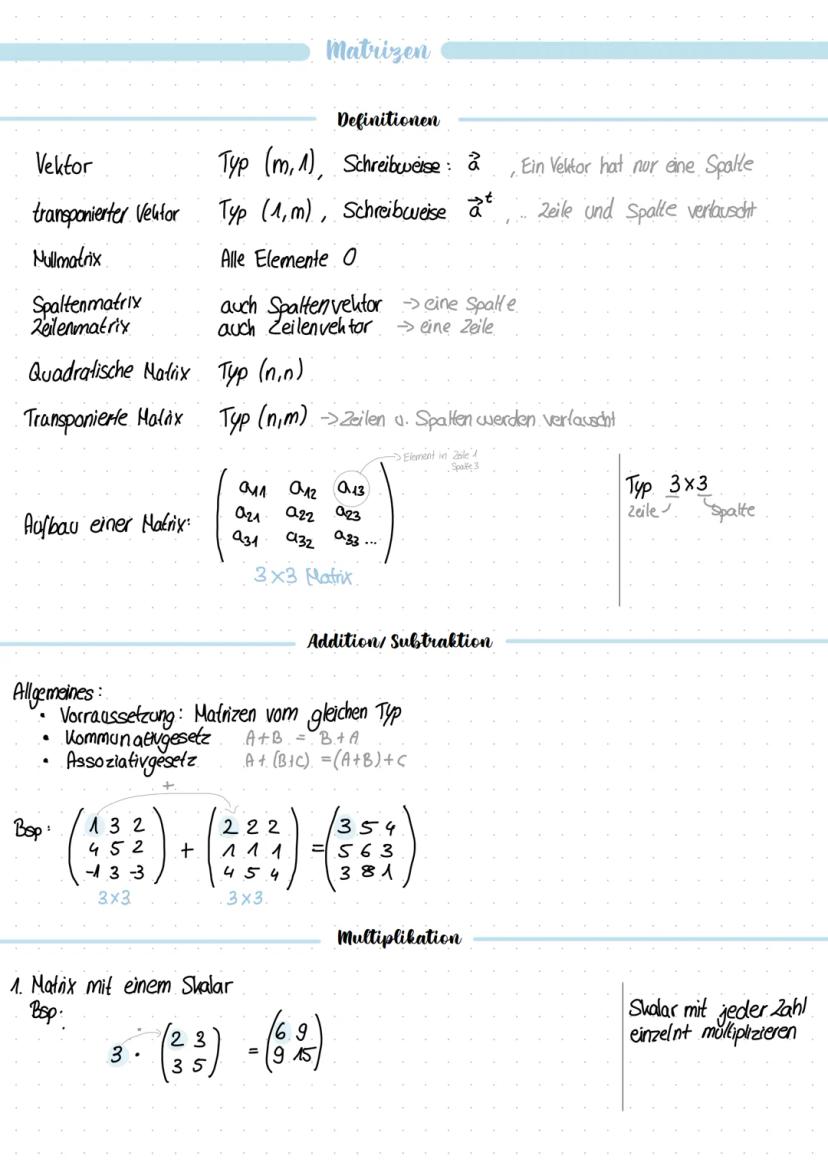 Matrizen
Definitionen
Vektor Typ (m,1), Schreibweise: a⃗ , Ein Vektor hat nur eine Spalte
transponierter Vektor Typ (1,m), Schreibweise a⃗ᵗ, .. Zeile und Spalte vertauscht
Nullmatrix Alle Elemente 0
Spaltenmatrix auch Spaltenvektor → eine Spalte
Zeilenmatrix auch Zeilenvektor → eine Zeile
Quadratische Matrix Typ (n,n)
Transponierte Matrix Typ (n,m) → Zeilen u. Spalten werden vertauscht
→ Element in Zeile 1
Spalte 3
Aufbau einer Matrix:
a11 a12 a13
a21 a22 a23
a31 a32 a33 ...
3×3 Matrix
Typ 3×3
Zeile Spalte
Addition/Subtraktion
Allgemeines:
• Vorraussetzung: Matrizen vom gleichen Typ
• Kommunativgesetz A+B = B+A
• Assoziativgesetz A+(B+C) =(A+B)+C
+
Bsp:
( 1 3 2 ) ( 2 2 2 ) ( 3 5 4 )
( 4 5 2 ) + ( 1 1 1 ) = ( 5 6 3 )
( -1 3 -3 ) ( 4 5 4 ) ( 3 8 1 )
3×3 3×3
Multiplikation
1. Matrix mit einem Skalar
Bsp:
3 · ( 2 3 ) = ( 6 9 )
( 3 5 ) ( 9 15 )
Skalar mit jeder Zahl
einzelnt multiplizieren